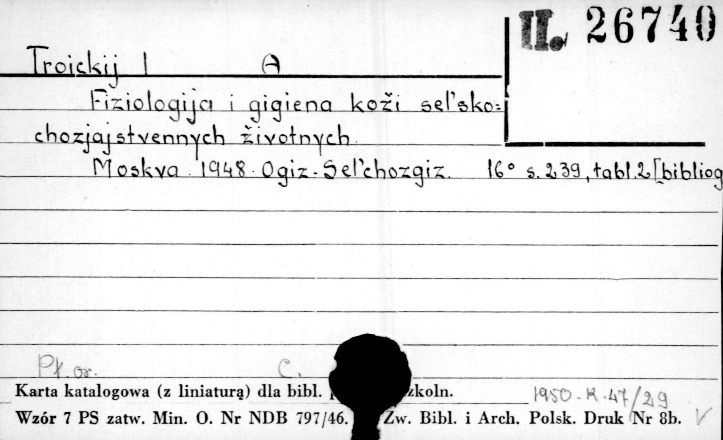 II. 26740
Troickij I A
Fiziologija i gigiena koži sel'sko=
chozjajstvennych životnych.
Moskva. 1948. Ogiz-Sel'chozgiz. 16° s.239, tabl.2 [bibliog
Pł. or. C.
Karta katalogowa (z liniaturą) dla bibl. zkoln. 1950-K-47/29
Wzór 7 PS zatw. Min. O. Nr NDB 797/46. Zw. Bibl. i Arch. Polsk. Druk Nr 8b.